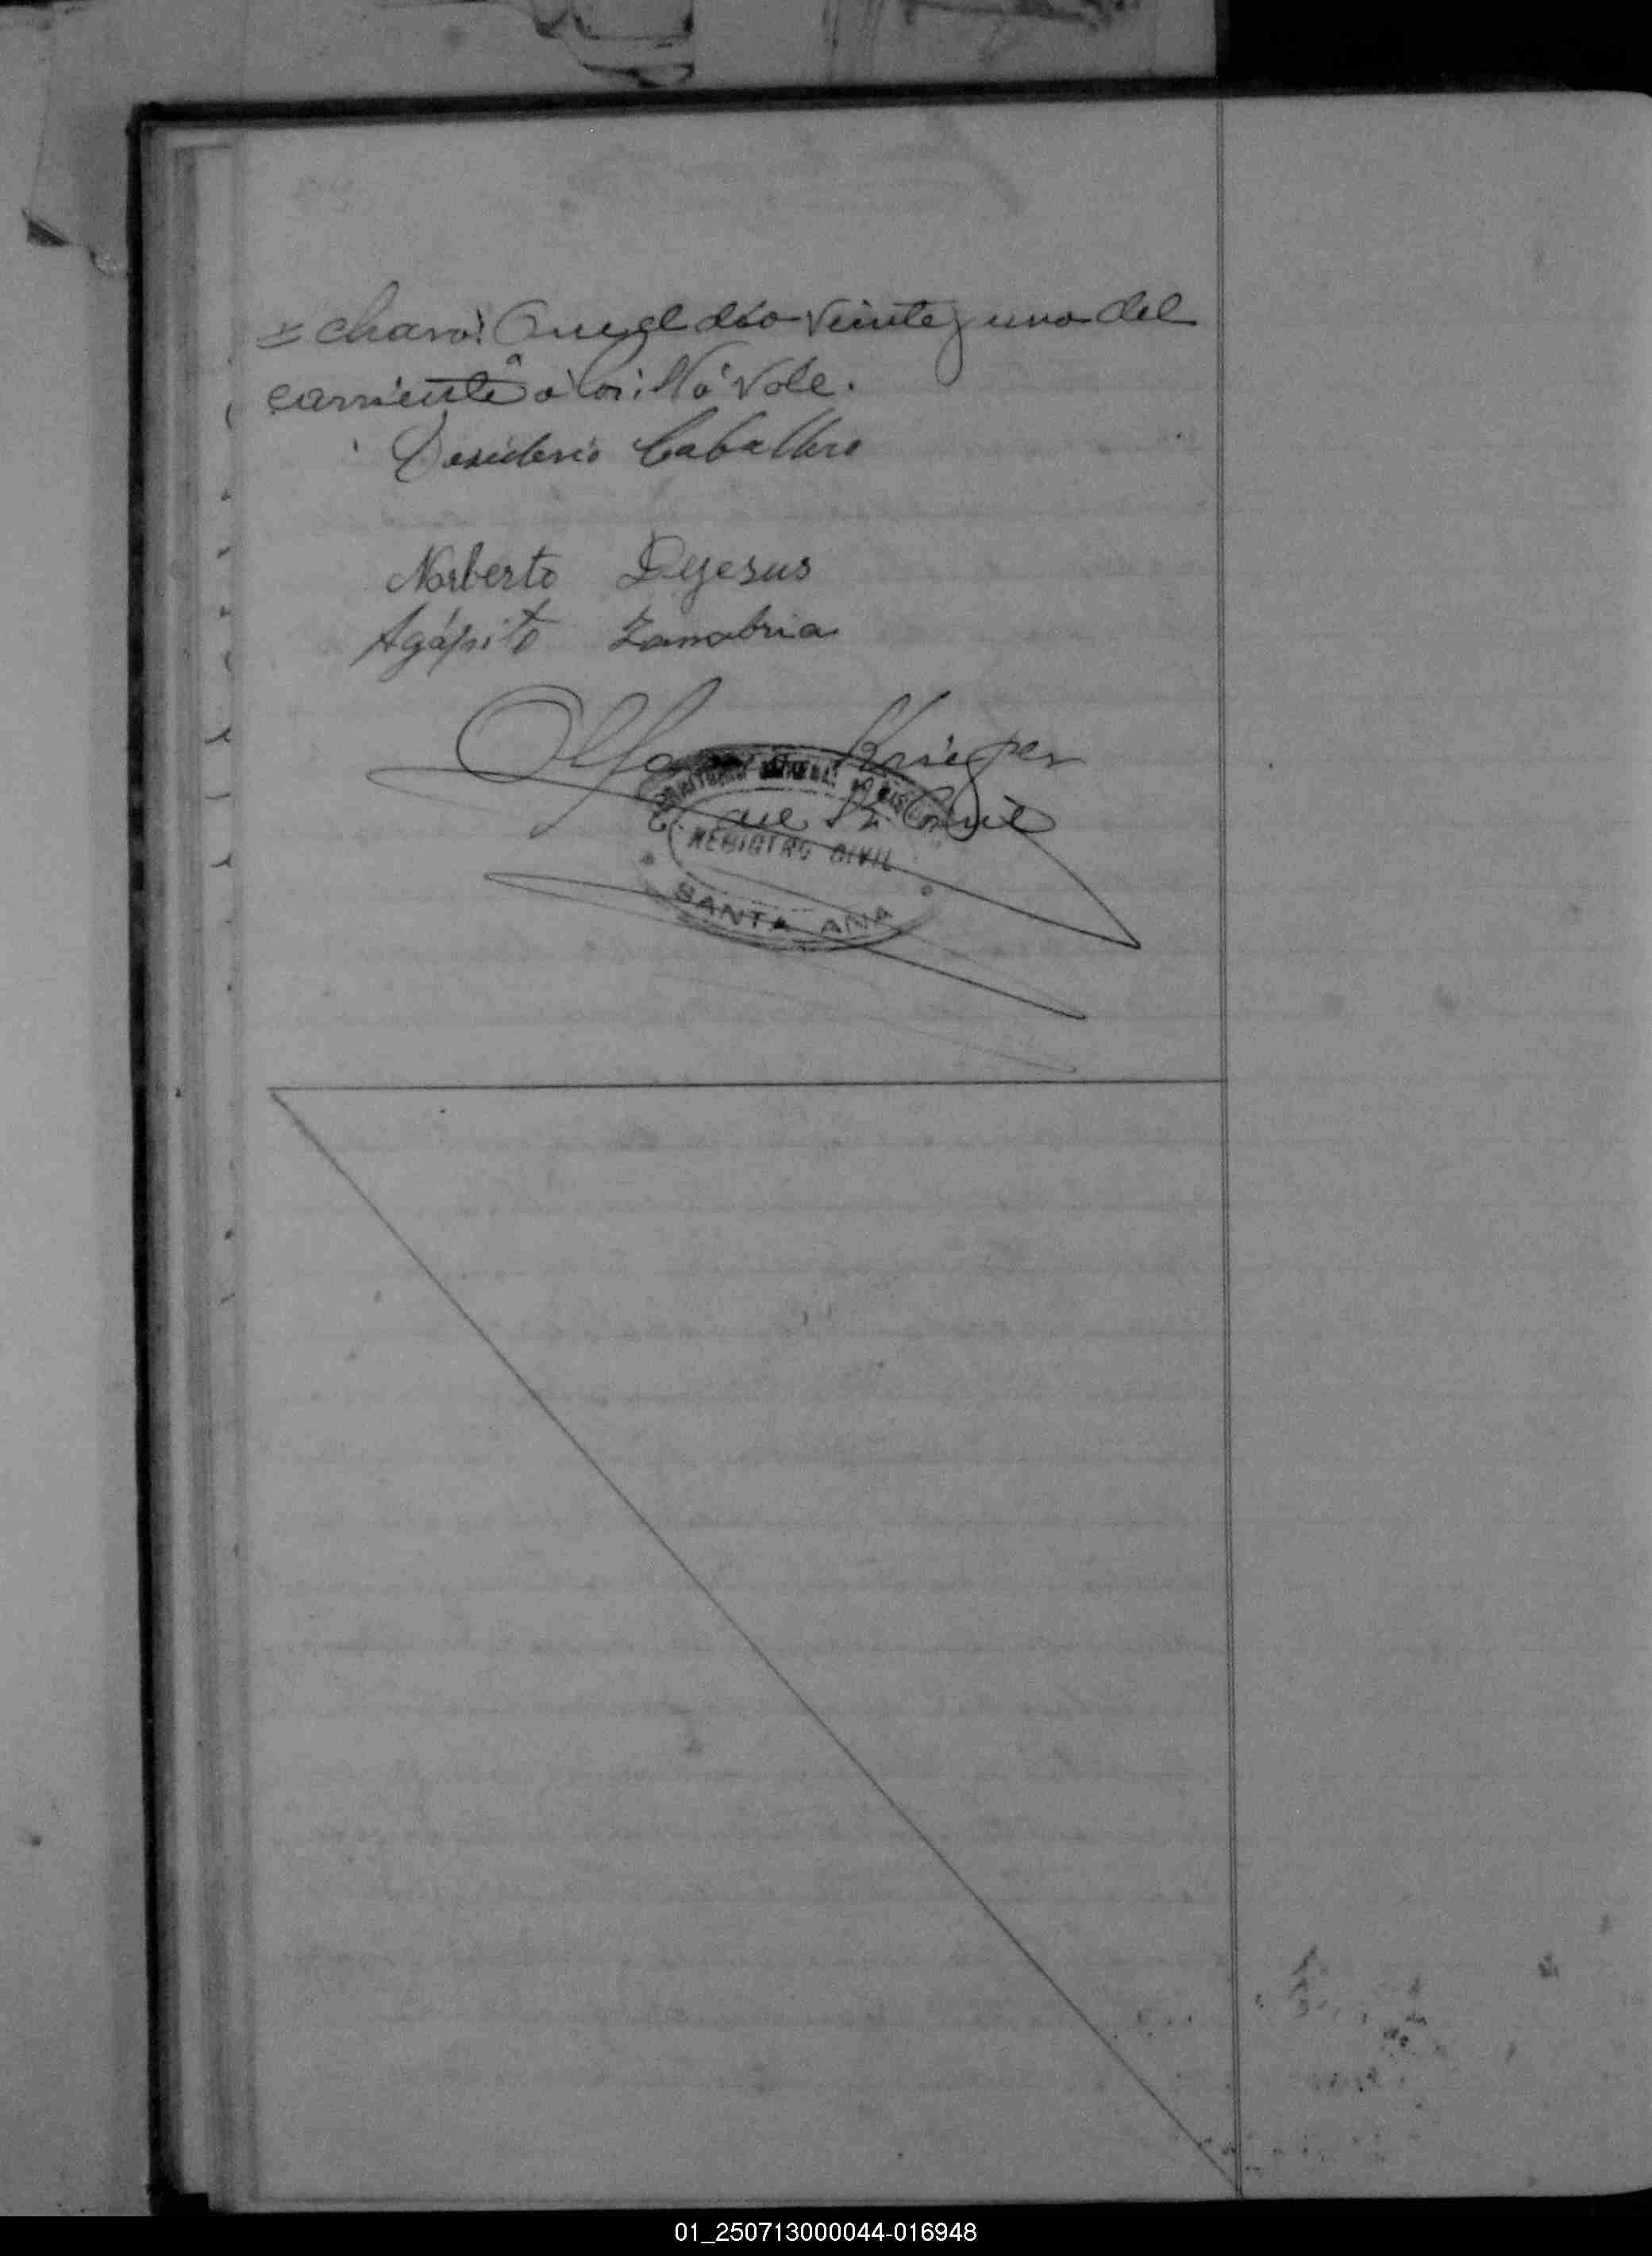 charo: Que el dia veinte y uno del
corriente No Vale.
Desiderio Caballero
Norberto Dejesus
Agápito Zanabria
Krieger
REGISTRO CIVIL
SANTA ANA
01_250713000044-016948